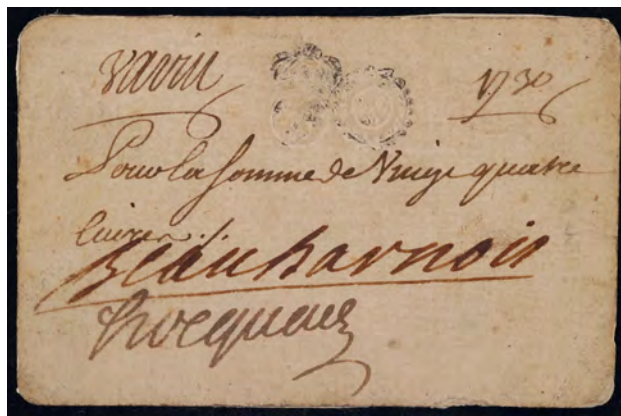 Varin 1730
Pour la Somme de Vingt quatre
livres ./.
Beauharnois
hocquart